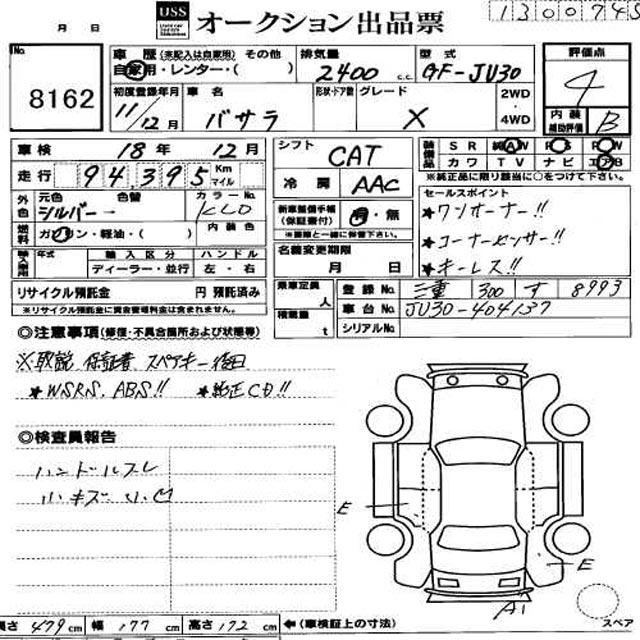 1300745
月 日 USS オークション出品票
No. 8162
車歴 (未記入は自家用) その他 排気量 型式
自家用・レンター・( ) 2400 c.c. GF-JU30
初度登録年月 車名 形状・ドア数 グレード 2WD・4WD
11/12月 バサラ X
評価点 4
内装補助評価 B
車検 18年 12月
走行 94,395 Km マイル
シフト CAT
冷房 AAC
装備品 SR 純AW PS PW
カワ TV ナビ エアB
※純正品に限り該当に○をつけて下さい。
外色 元色 色替 カラーNo.
シルバー KLO
燃料 ガソリン・軽油・( ) 内装色
輸入車用 年式 輸入区分 ハンドル
ディーラー・並行 左・右
新車整備手帳(保証書付) 有・無
※書類と一緒に保管下さい。
名義変更期限
月 日
セールスポイント
★ワンオーナー!!
★コーナーセンサー!!
★キーレス!!
リサイクル預託金 円 預託済み
※リサイクル預託金に資金管理料金は含まれません。
乗車定員 人
積載量 t
登録No. 三重 300 す 8993
車台No. JU30-404137
シリアルNo.
◎注意事項(修復・不具合箇所および状態等)
※取説 保証書 スペアキー後日
★WSRS, ABS!! ★純正CD!!
◎検査員報告
ハンドルスレ
小キズ 小凹
E
E
A1
スペア
長さ 479cm 幅 177cm 高さ 172cm ←(車検証上の寸法)